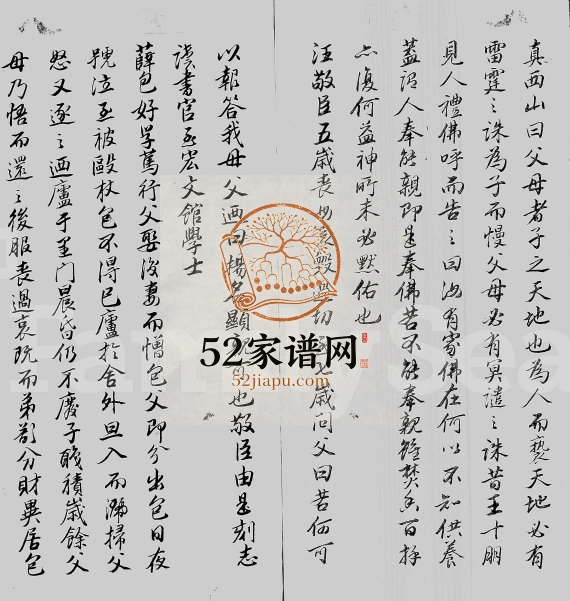 真西山曰父母者子之天地也為人而褻天地必有
雷霆之誅為子而慢父母必有冥譴之誅昔王十朋
見人禮佛呼而告之曰汝有家佛在何以不知供養
蓋謂人奉能親即是奉佛若不能奉親雖焚香百拜
亦復何益神明未必默佑也
汪敬臣五歲喪母哀毀 切 七歲問父曰若何可
以報答我母父迺曰揚名顯 也敬臣由是刻志
读書官至宏文館學士
薛包好學篤行父娶後妻而憎包父即分出包日夜
號泣至被毆杖包不得已廬於舍外旦入而灑掃父
怒又逐之迺廬于里门晨昏仍不廢子職積歲餘父
母乃悟而還之後服喪過哀既而弟欲分财異居包
52家谱网
52jiapu.com